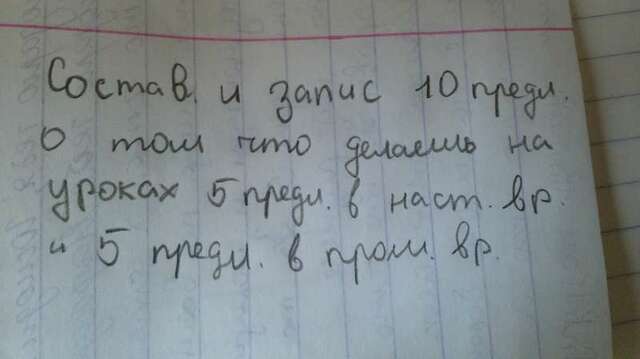 Состав. и запис 10 предл.
о том что делаешь на
уроках 5 предл. в наст. вр.
и 5 предл. в прош. вр.